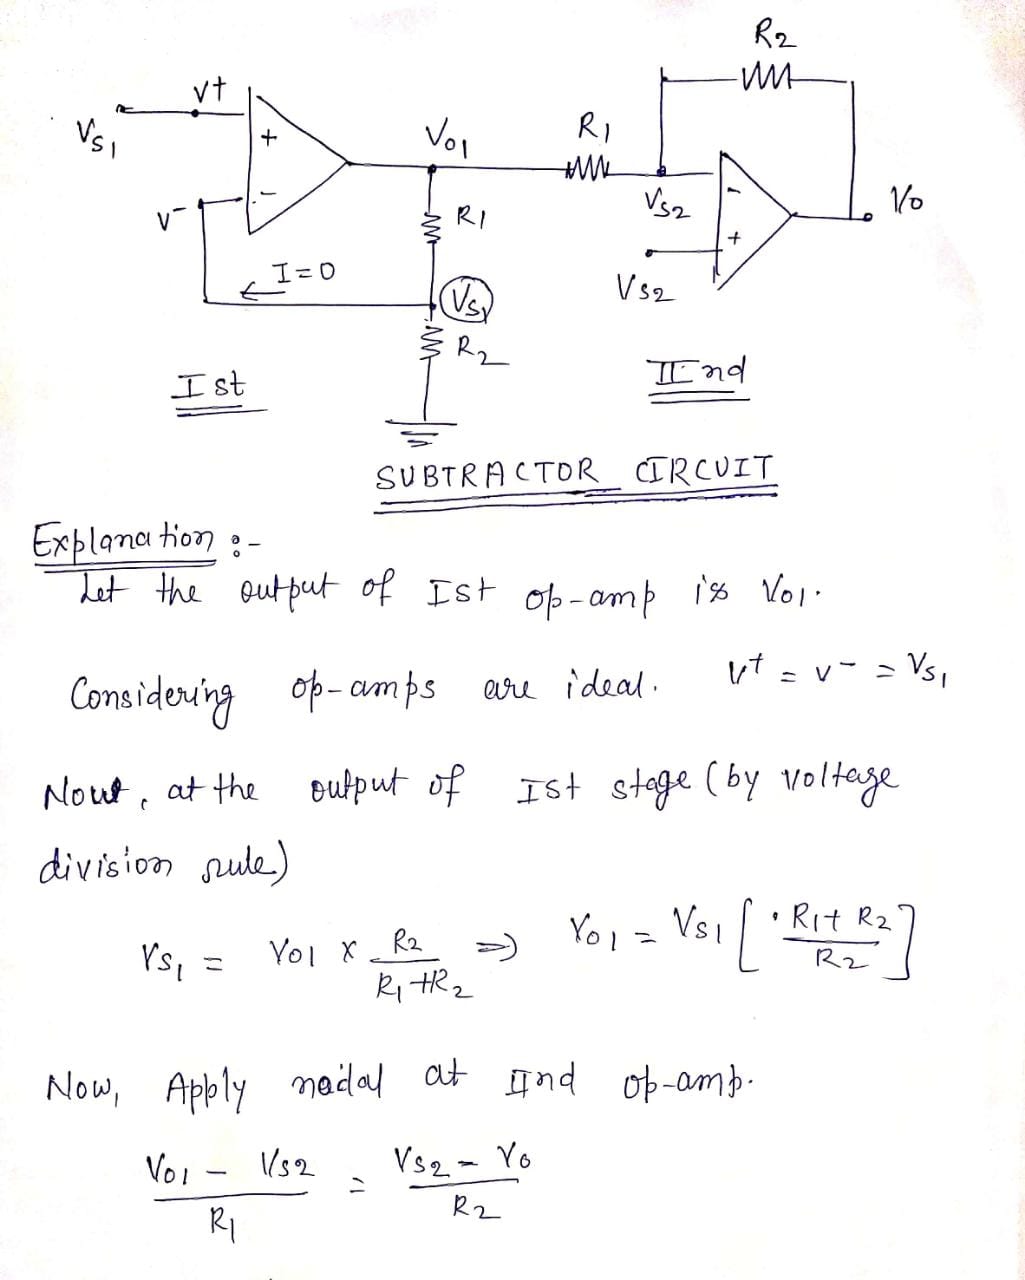 R2
V+
Vs1
+
Vo1
R1
V-
-
R1
Vs2
-
+
Vo
I=0
Vs1
Vs2
R2
Ist
IInd
SUBTRACTOR CIRCUIT
Explanation :-
Let the output of Ist op-amp is Vo1.
Considering op-amps are ideal. V+ = V- = Vs1
Now, at the output of Ist stage (by voltage
division rule)
Vs1 = Vo1 x R2/(R1+R2) => Vo1 = Vs1 [R1+R2/R2]
Now, Apply nodal at IInd op-amp.
(Vo1 - Vs2)/R1 = (Vs2 - Vo)/R2